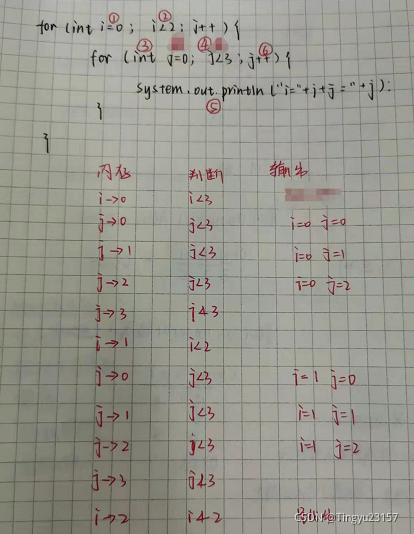 ① ②
for (int i=0; i<2; j++){
③ ④ ⑥
for (int j=0; j<3; j++){
System.out.println("i="+j+j="+j):
⑤
}
}
内存 判断 输出
i→0 i<3
j→0 j<3 i=0 j=0
j→1 j<3 i=0 j=1
j→2 j<3 i=0 j=2
j→3 j≮3
i→1 i<2
j→0 j<3 i=1 j=0
j→1 j<3 i=1 j=1
j→2 j<3 i=1 j=2
j→3 j≮3
i→2 i≮2
CSDN @Tingyu23157